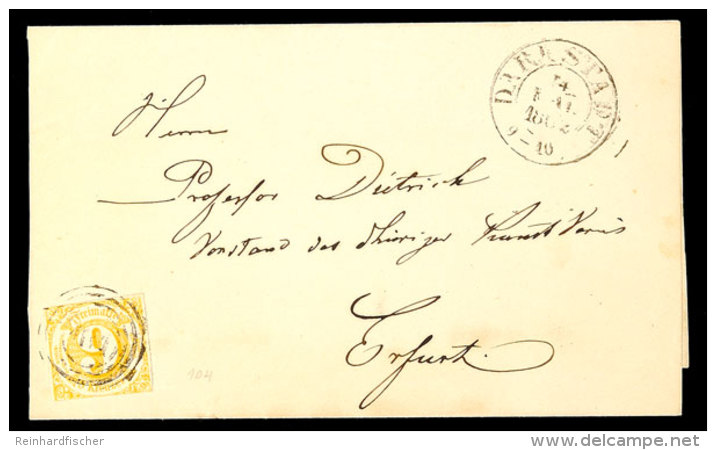 DARMSTADT
MAI
1862
9 - 10
Herrn
Professor Dietrich
Vorstand des Thüringer Kunst Vereins
Erfurt.
Freimarke
104
Reinhardfischer
www.delcampe.net